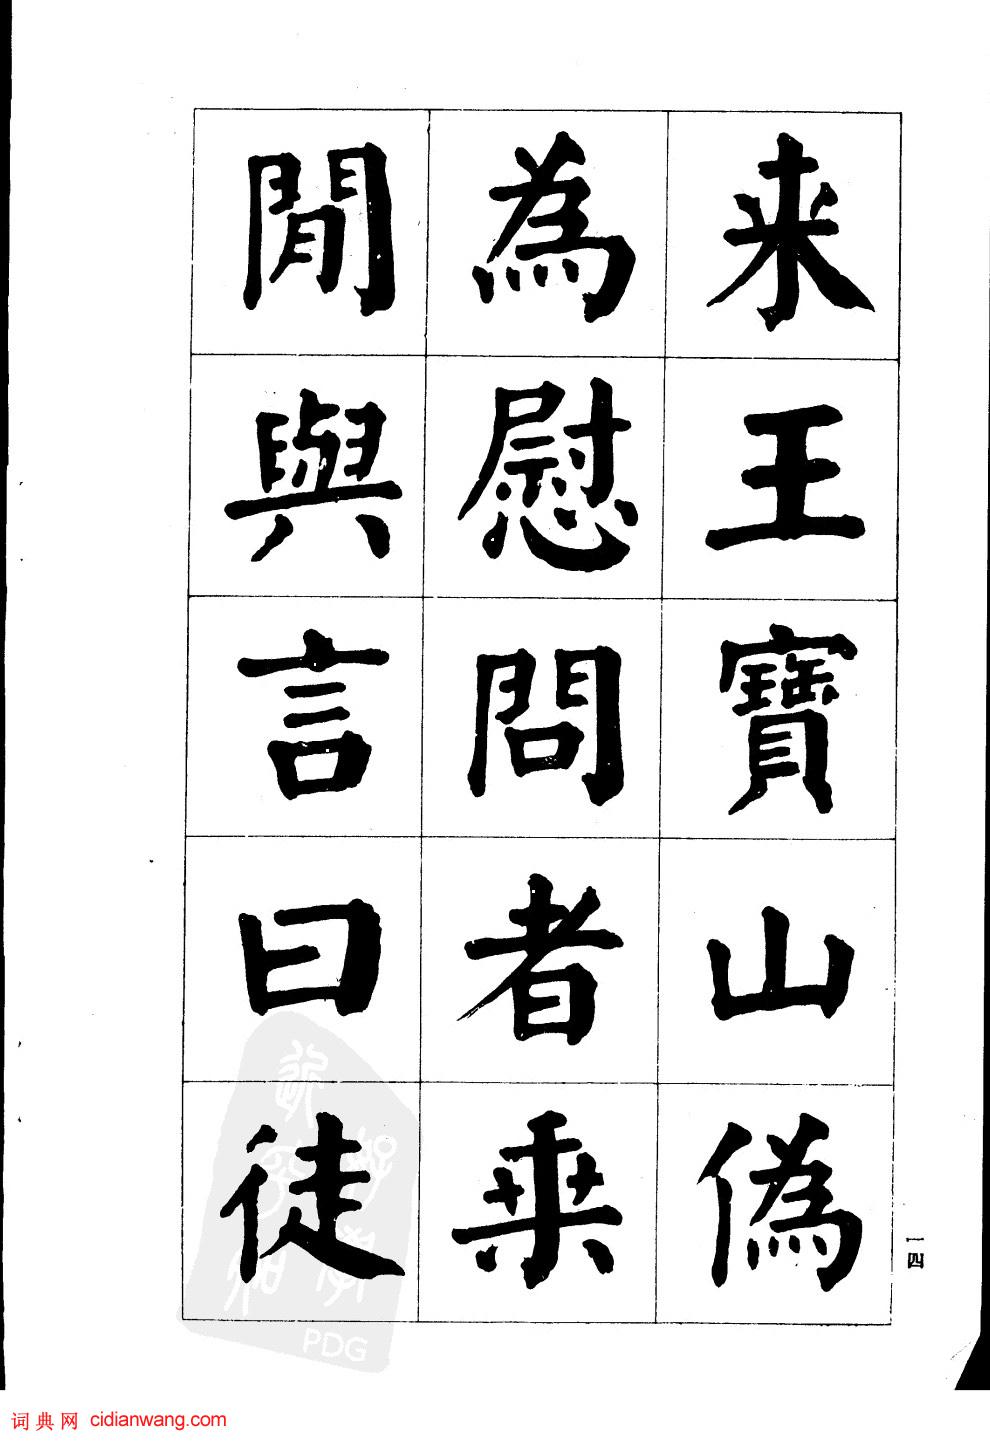 来王寳山偽
為慰問者乗
閒與言曰徒
一四
PDG
词典网 cidianwang.com